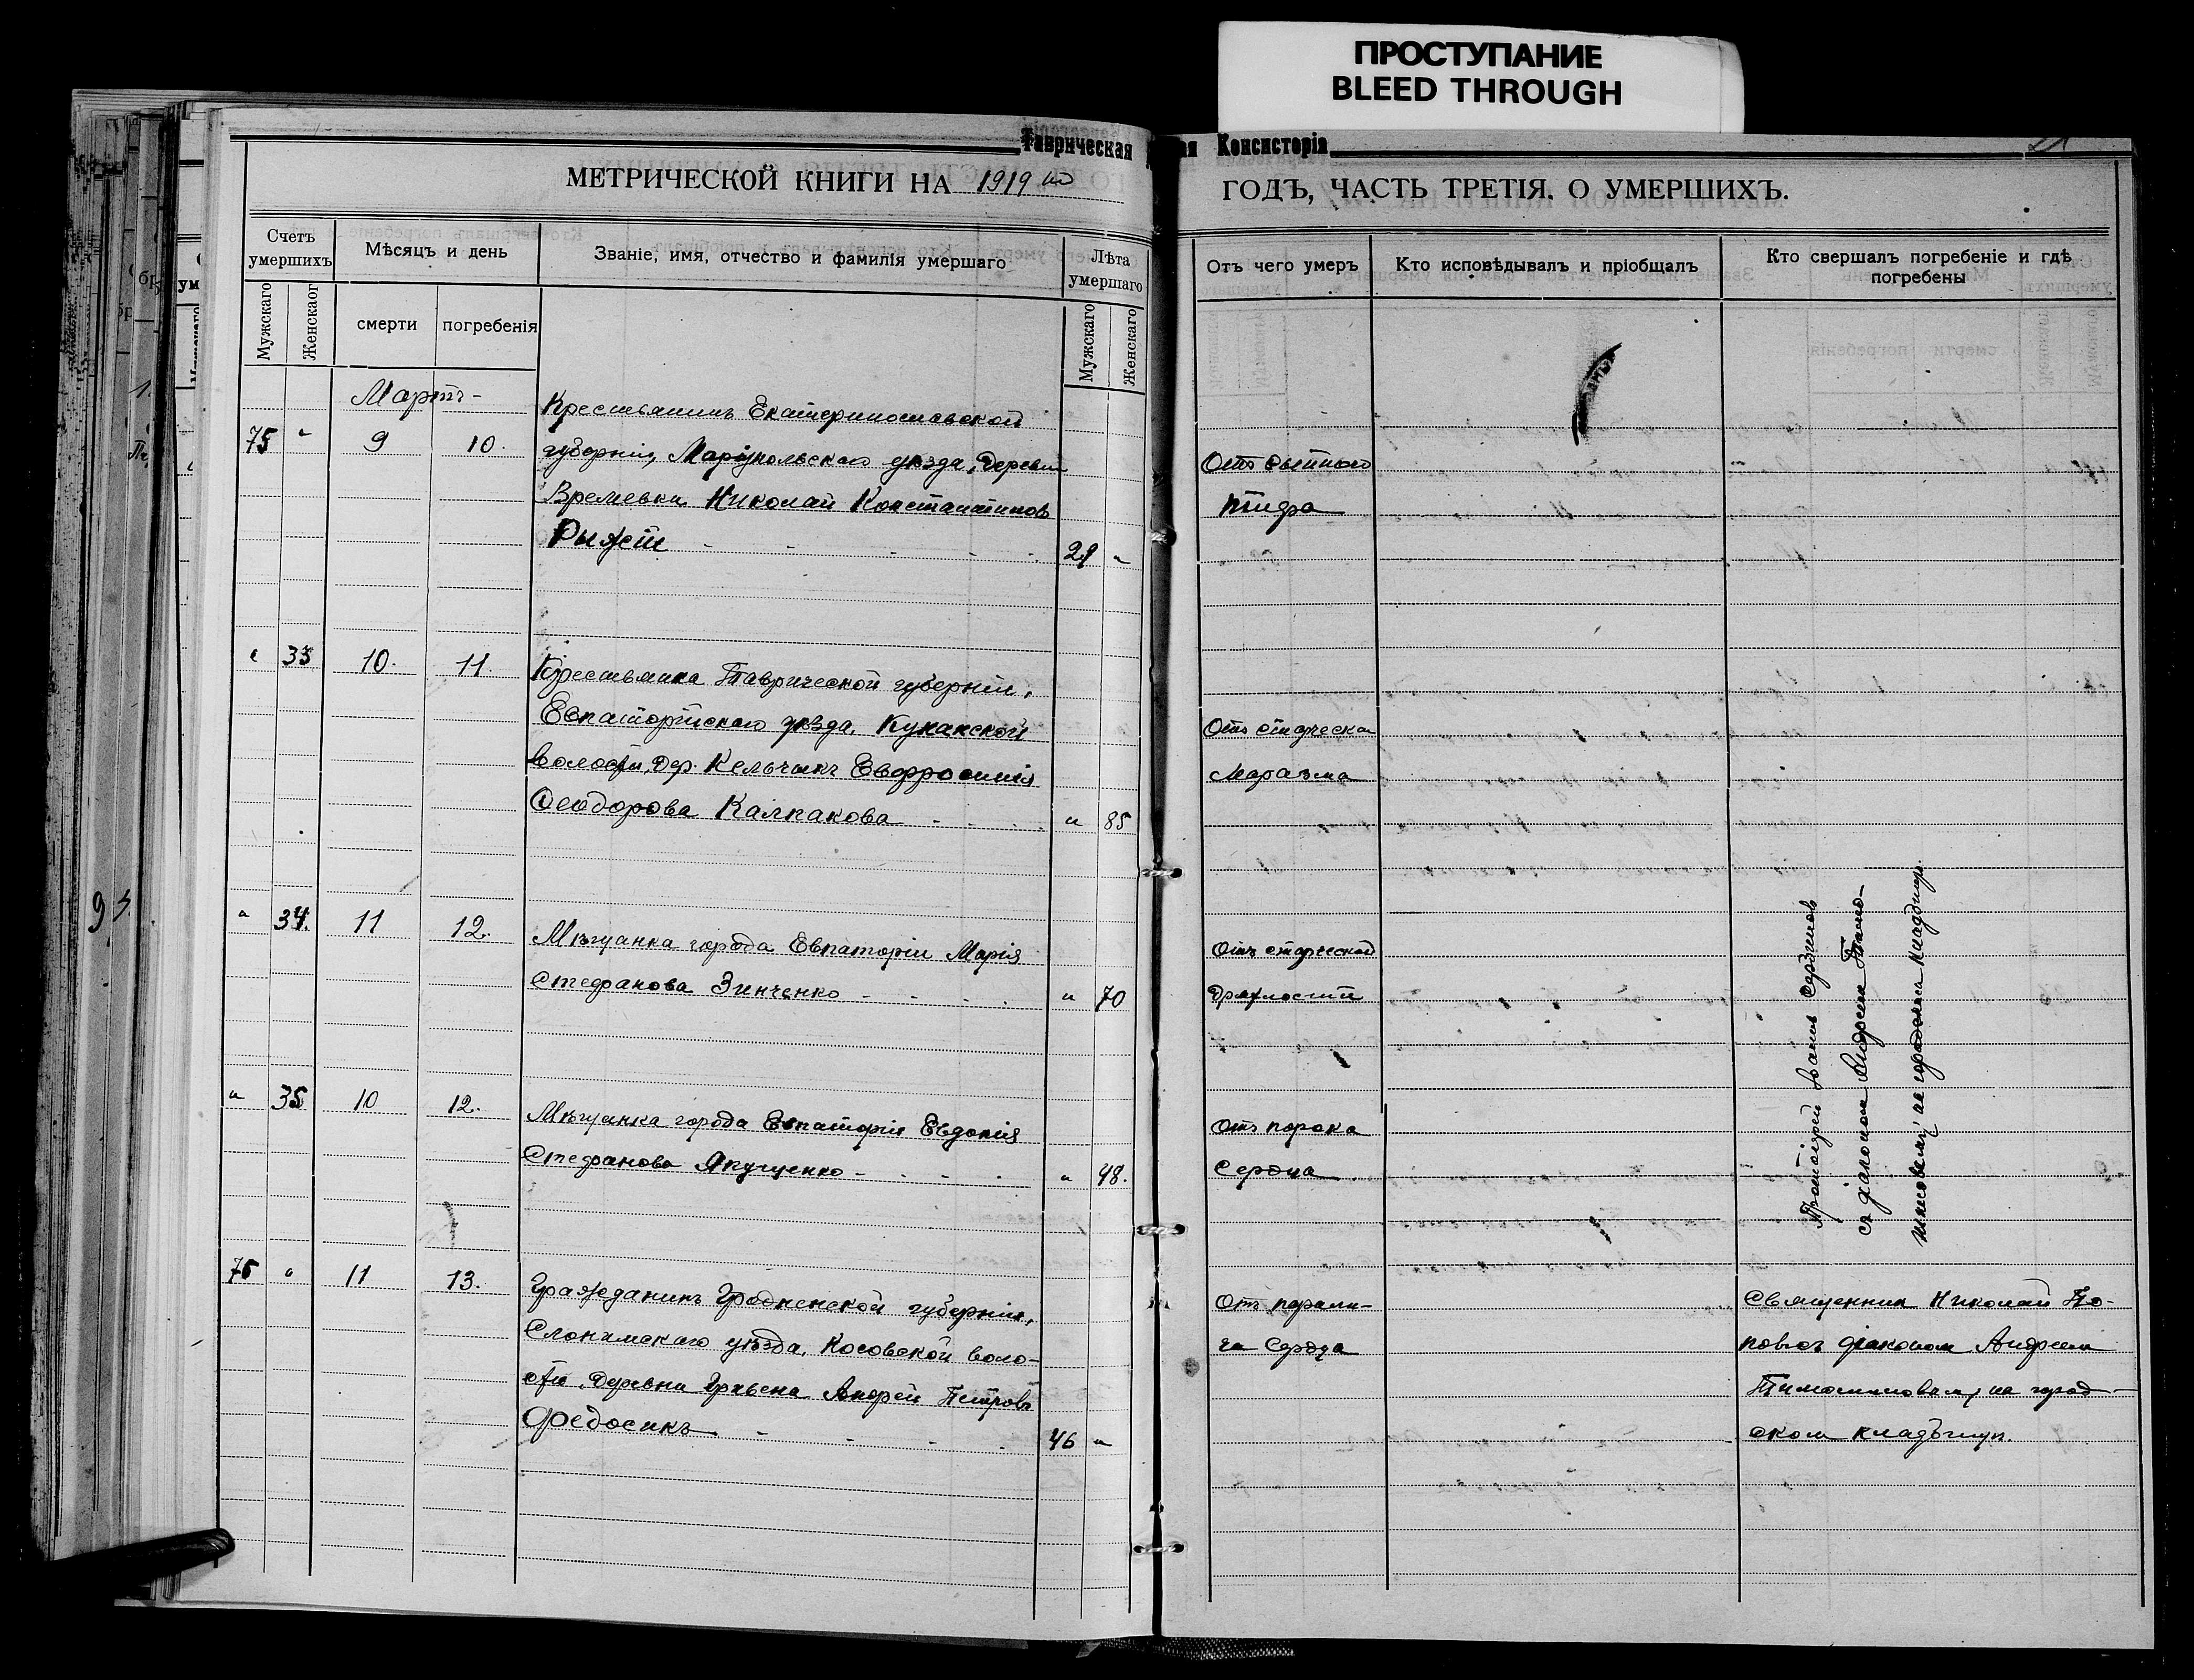 ПРОСТУПАНИЕ
BLEED THROUGH
Таврическая
Консисторія
МЕТРИЧЕСКОЙ КНИГИ НА 1919 й
ГОДЪ, ЧАСТЬ ТРЕТІЯ, О УМЕРШИХЪ.
Счетъ умершихъ
Мѣсяцъ и день
Званіе, имя, отчество и фамилія умершаго
Лѣта умершаго
Отъ чего умеръ
Кто исповѣдывалъ и пріобщалъ
Кто свершалъ погребеніе и гдѣ погребены
Мужскаго
Женскаог
смерти
погребенія
Мужскаго
Женскаго
Мартъ -
75 " 9 10.
Крестьянинъ Екатеринославской
губерніи, Маріупольскаго уѣзда, деревни
Времевки Николай Константиновъ
Рыжій - - - - 29 "
Отъ сыпного
тифа
" 33 10. 11.
Крестьянка Таврической губерніи,
Евпаторійскаго уѣзда, Кунанской
волости, дер. Кельчакъ Евфросинія
Ѳеодорова Калпакова - - - " 85
Отъ старческа
маразма
" 34. 11 12.
Мѣщанка города Евпаторіи Марія
Стефанова Зинченко - - - - " 70
Отъ старческой
дряхлости
" 35 10 12.
Мѣщанка города Евпаторіи Евдокія
Стефанова Япущенко - - - - " 48.
Отъ порока
сердца
Протоіерей Іоаннъ Сербиновъ
съ діакономъ Андреем Тимо-
шиновымъ, на городскомъ кладбищѣ.
76 " 11 13.
Гражданинъ Гродненской губерніи,
Слонимскаго уѣзда, Косовской воло-
сти, деревни Гривена Андрей Петровъ
Федосикъ - - - - 46 "
Отъ парали-
ча сердца
Священник Николай По-
повъ съ діаконом Андреем
Тимошиновым, на город-
ском кладбищѣ.